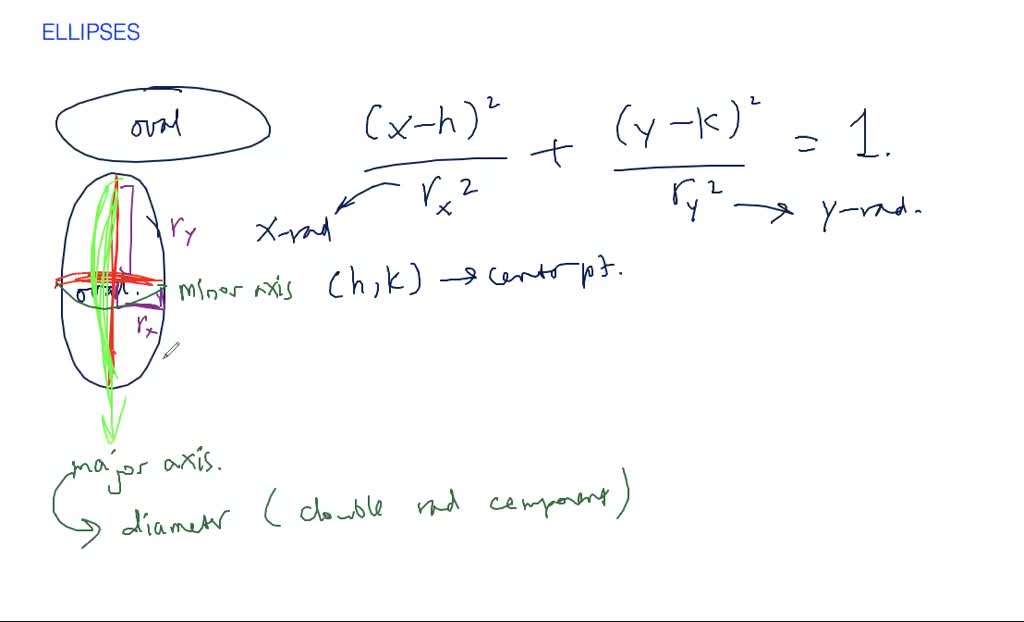 ELLIPSES
oval
(x-h)² / rx² + (y-k)² / ry² = 1.
x-rad
y-rad.
ry
oval.
minor axis
(h,k) → center pt.
rx
major axis.
→ diameter (double rad component)